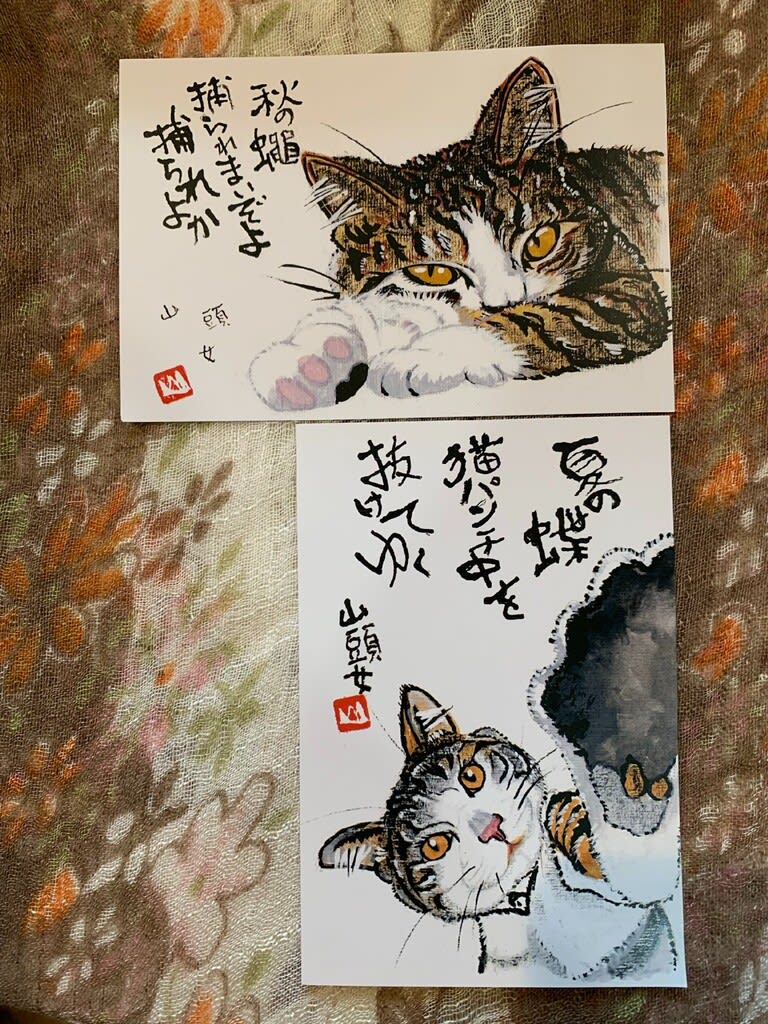 秋の蠅
捕られまいぞよ
捕ちれかよ
山頭女
夏の蝶
猫パンチ中を
抜けてゆく
山頭女